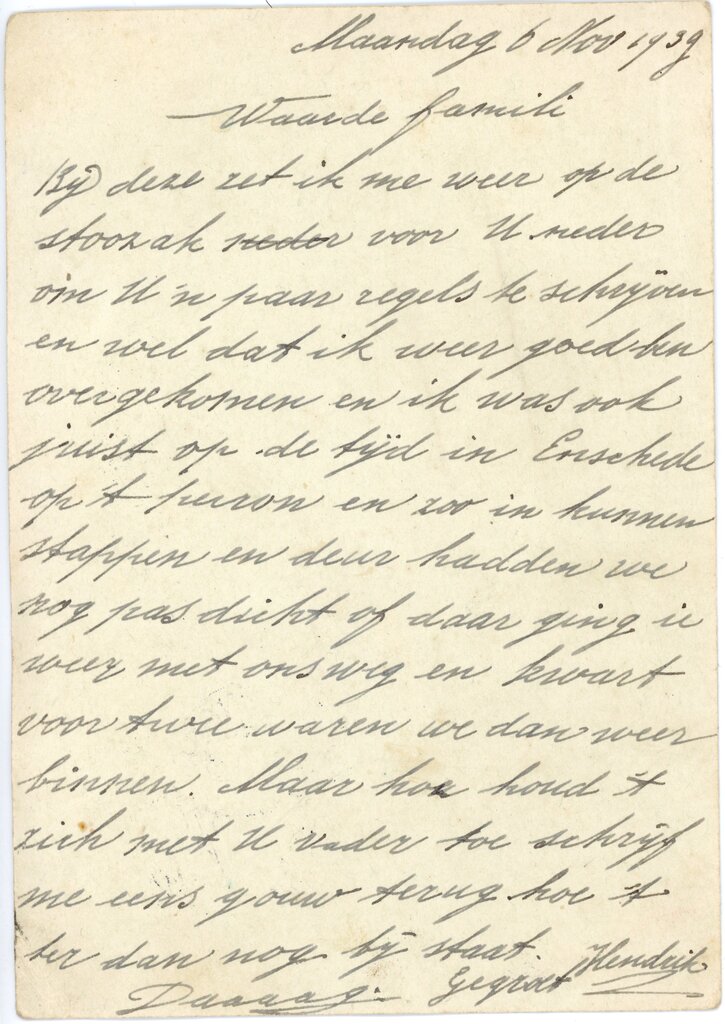 Maandag 6 Nov 1939
Waarde famili
Bij deze zet ik me weer op de
stoozak neder voor U neder
om U 'n paar regels te schrijven
en wel dat ik weer goed ben
overgekomen en ik was ook
juist op de tijd in Enschede
op 't peiron en zoo in kunnen
stappen en deur hadden we
nog pas dicht of daar ging ie
weer met ons weg en kwart
voor twie waren we dan weer
binnen. Maar hoe houd 't
zich met U vader toe schrijf
me eens gouw terug hoe 't
ter dan nog bij staat.
Daaaag. Gegroet Hendrik